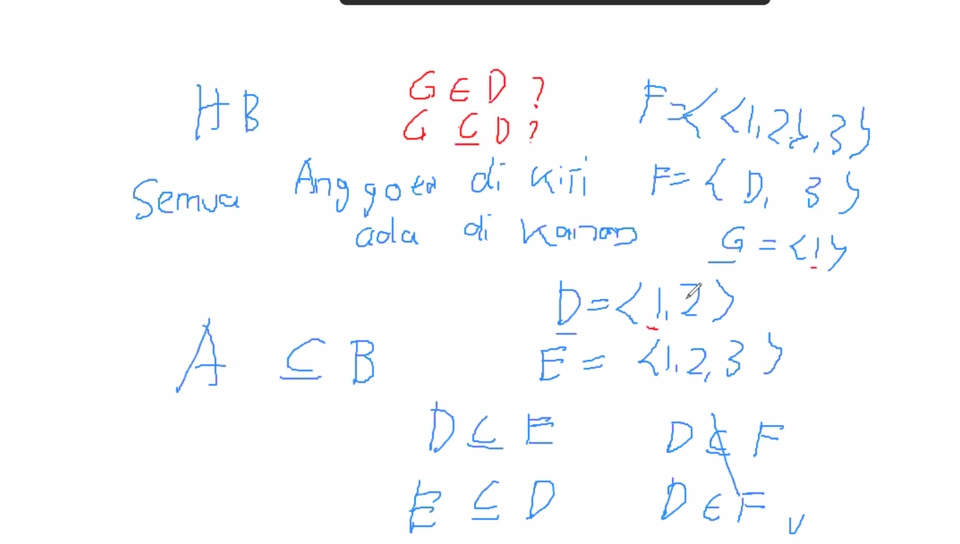 HB
G ∈ D ?
G ⊆ D ?
F = < <1, 2>, 3 >
Semua Anggota di kiri
ada di kanan
F = { D, 3 >
G = <1>
D = <1, 2>
E = <1, 2, 3>
A ⊆ B
D ⊆ E
D ⊈ F
E ⊆ D
D ∈ F